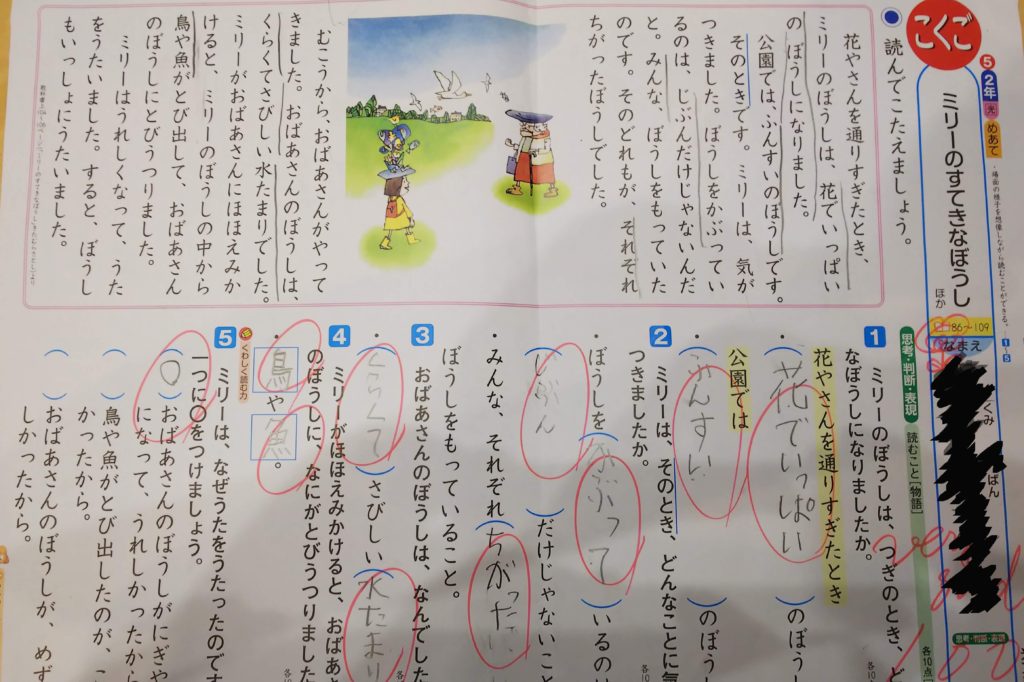 こくご
5 2年 光 めあて
・場面の様子を想像しながら読むことができる。
ミリーのすてきなぼうし
ほか
上86〜109
なまえ
くみ
ばん
思考・判断・表現
●読んでこたえましょう。
花やさんを通りすぎたとき、
ミリーのぼうしは、花でいっぱい
のぼうしになりました。
公園では、ふんすいのぼうしです。
そのときです。ミリーは、気が
つきました。ぼうしをかぶってい
るのは、じぶんだけじゃないんだ
と。みんな、ぼうしをもっていた
のです。そのどれもが、それぞれ
ちがったぼうしでした。
むこうから、おばあさんがやって
きました。おばあさんのぼうしは、
くらくてさびしい水たまりでした。
ミリーがおばあさんにほほえみか
けると、ミリーのぼうしの中から
鳥や魚がとび出して、おばあさん
のぼうしにとびうつりました。
ミリーはうれしくなって、うた
をうたいました。すると、ぼうし
もいっしょにうたいました。
思考・判断・表現
読むこと「物語」
各10点
1 ミリーのぼうしは、つぎのとき、ど
なぼうしになりましたか。
花やさんを通りすぎたとき
・(花でいっぱい)のぼう
公園では
・(ふんすい)のぼう
2 ミリーは、そのとき、どんなことに気
つきましたか。
・ぼうしを(かぶって)いるの
(じぶん)だけじゃないこと
・みんな、それぞれ(ちがった)
ぼうしをもっていること。
3 おばあさんのぼうしは、なんでした
・(くらくて)さびしい(水たまり
4 ミリーがほほえみかけると、おばあ
のぼうしに、なにがとびうつりました
・鳥や魚。
くわしく読む力
5 ミリーは、なぜうたをうたったのです
一つに○をつけましょう。
(○)おばあさんのぼうしがにぎや
になって、うれしかったから
( )鳥や魚がとび出したのが、こ
かったから。
( )おばあさんのぼうしが、めず
しかったから。